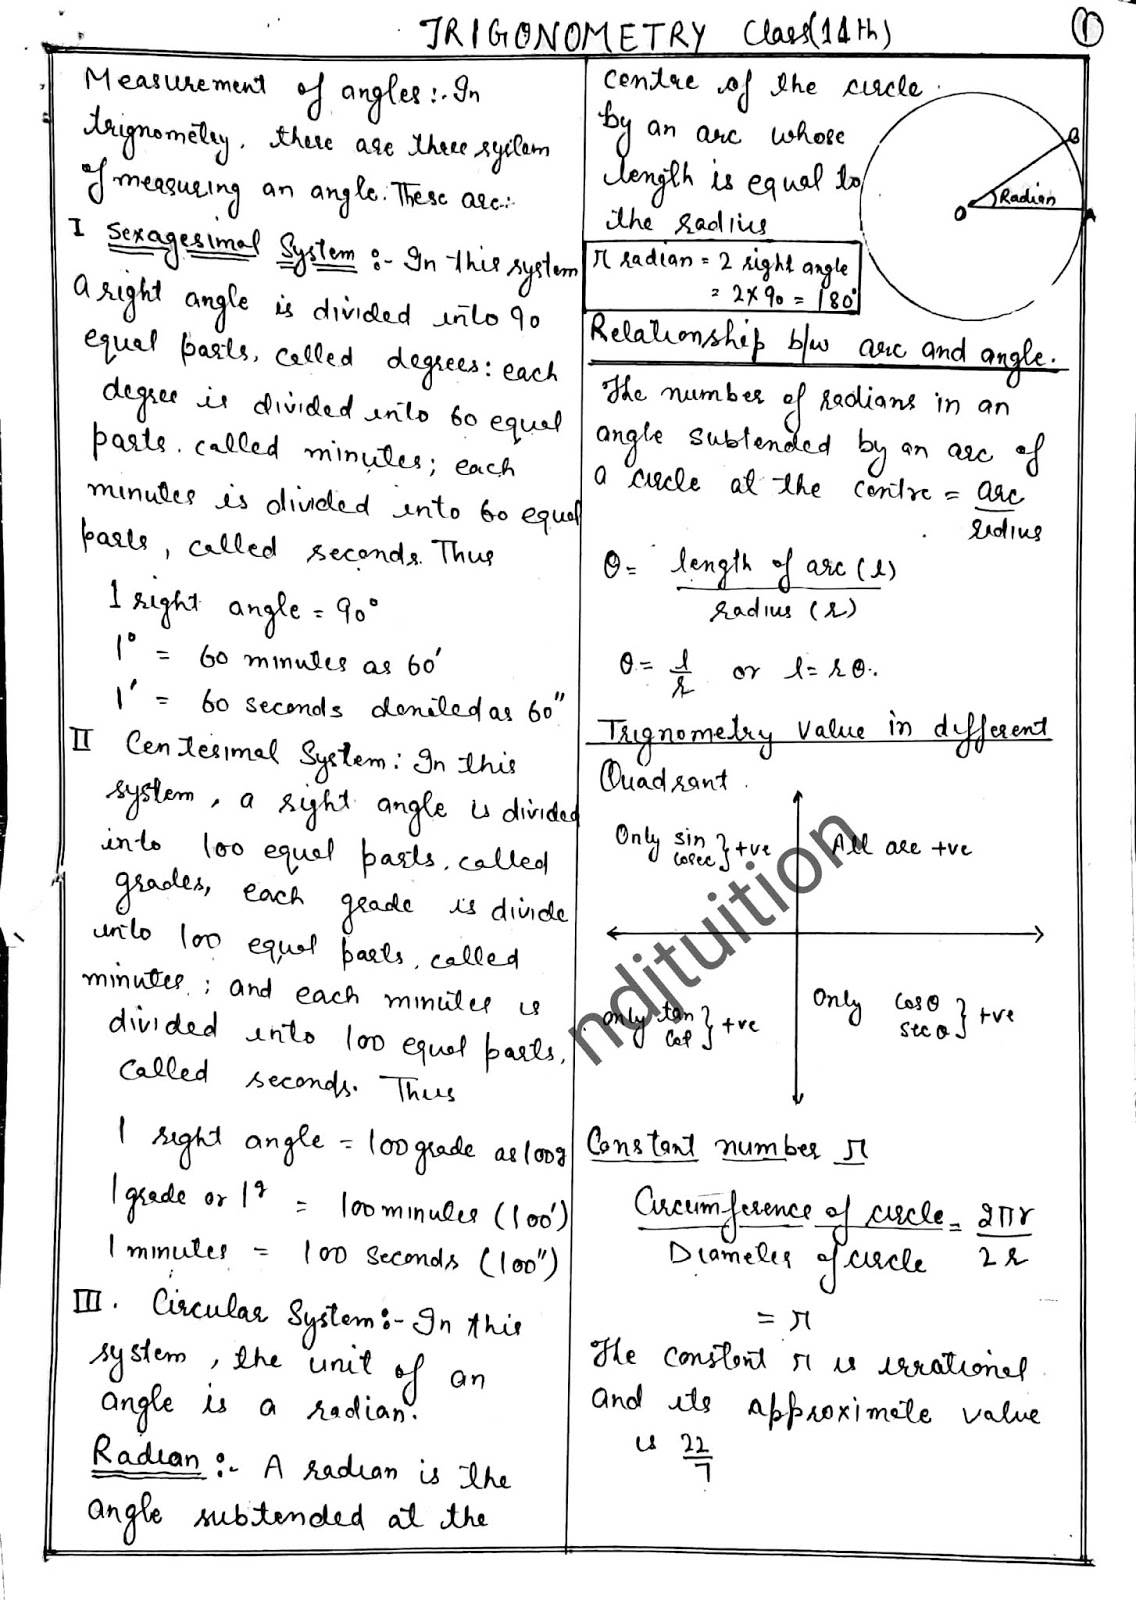 TRIGONOMETRY Class(11th)
1
Measurement of angles:- In
trignometry, there are three system
of measuring an angle. These are:-
I Sexagesimal System :- In this system
a right angle is divided into 90
equal parts, called degrees: each
degree is divided into 60 equal
parts. called minutes; each
minutes is divided into 60 equal
parts, called seconds. Thus
1 right angle = 90°
1° = 60 minutes as 60'
1' = 60 seconds denoted as 60"
II Centesimal System: In this
system, a right angle is divided
into 100 equal parts, called
grades, each grade is divide
into 100 equal parts, called
minutes; and each minutes is
divided into 100 equal parts,
called seconds. Thus
1 right angle = 100 grade as 100g
1 grade or 1g = 100 minutes (100')
1 minutes = 100 seconds (100")
III. Circular System:- In this
system, the unit of an
angle is a radian.
Radian :- A radian is the
angle subtended at the
centre of the circle
by an arc whose
length is equal to
the radius
B
O Radian A
π radian = 2 right angle
= 2×90 = 180°
Relationship b/w arc and angle.
The number of radians in an
angle subtended by an arc of
a circle at the centre = arc
radius
θ = length of arc (l)
radius (r)
θ = l/r or l = rθ.
Trignometry value in different
Quadrant
Only sin
cosec } +ve All are +ve
only tan
cot } +ve
Only cosθ
secθ } +ve
ndjtuition
Constant number π
Circumference of circle = 2πr
Diameter of circle 2r
= π
The constant π is irrational
and its approximate value
is 22/7